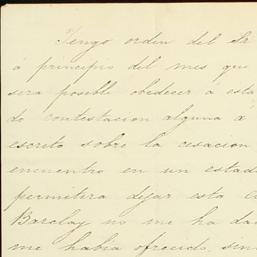 Tengo orden del Sr
á principio del mes que
sera posible obedecer a esta
do contestacion alguna a
escrito sobre la cesacion
encuentro en un estado
permitira dejar esta
Barclay no me ha da
me habia ofrecido, sin